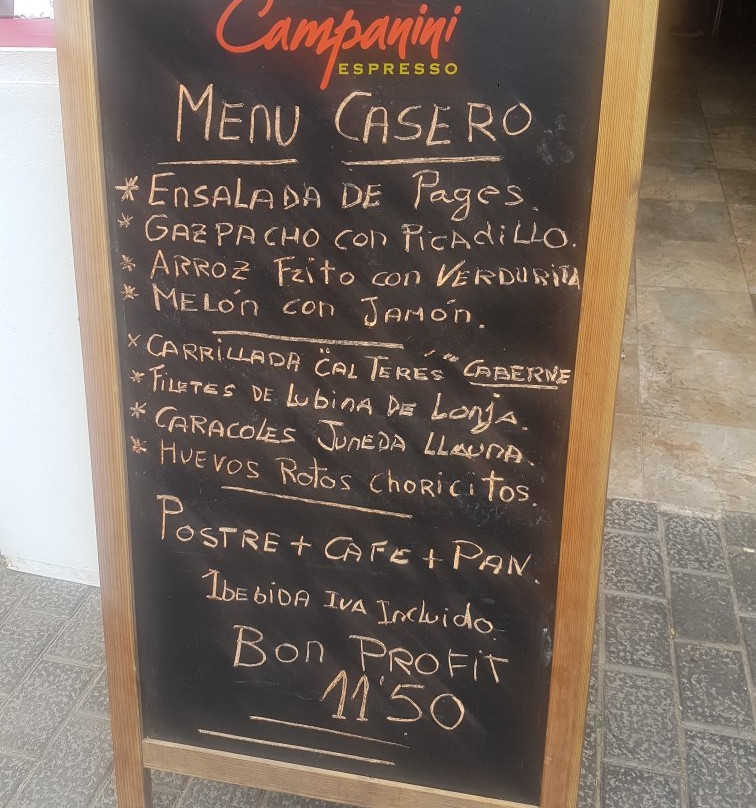 Campanini
ESPRESSO
MENU CASERO
* ENSALADA DE Pages.
* GAZPACHO con PICADILLO.
* ARROZ Frito con VERDURITA
* MELÓN con JAMÓN.
* CARRILLADA "CAL TERÉS" CABERNE
* FILETES DE LUBINA DE Lonja.
* CARACOLES JUNEDA LLAUNA.
* HUEVOS ROTOS CHORICITOS.
POSTRE + CAFE + PAN.
1BEBIDA IVA Incluido.
BON PROFIT
11'50